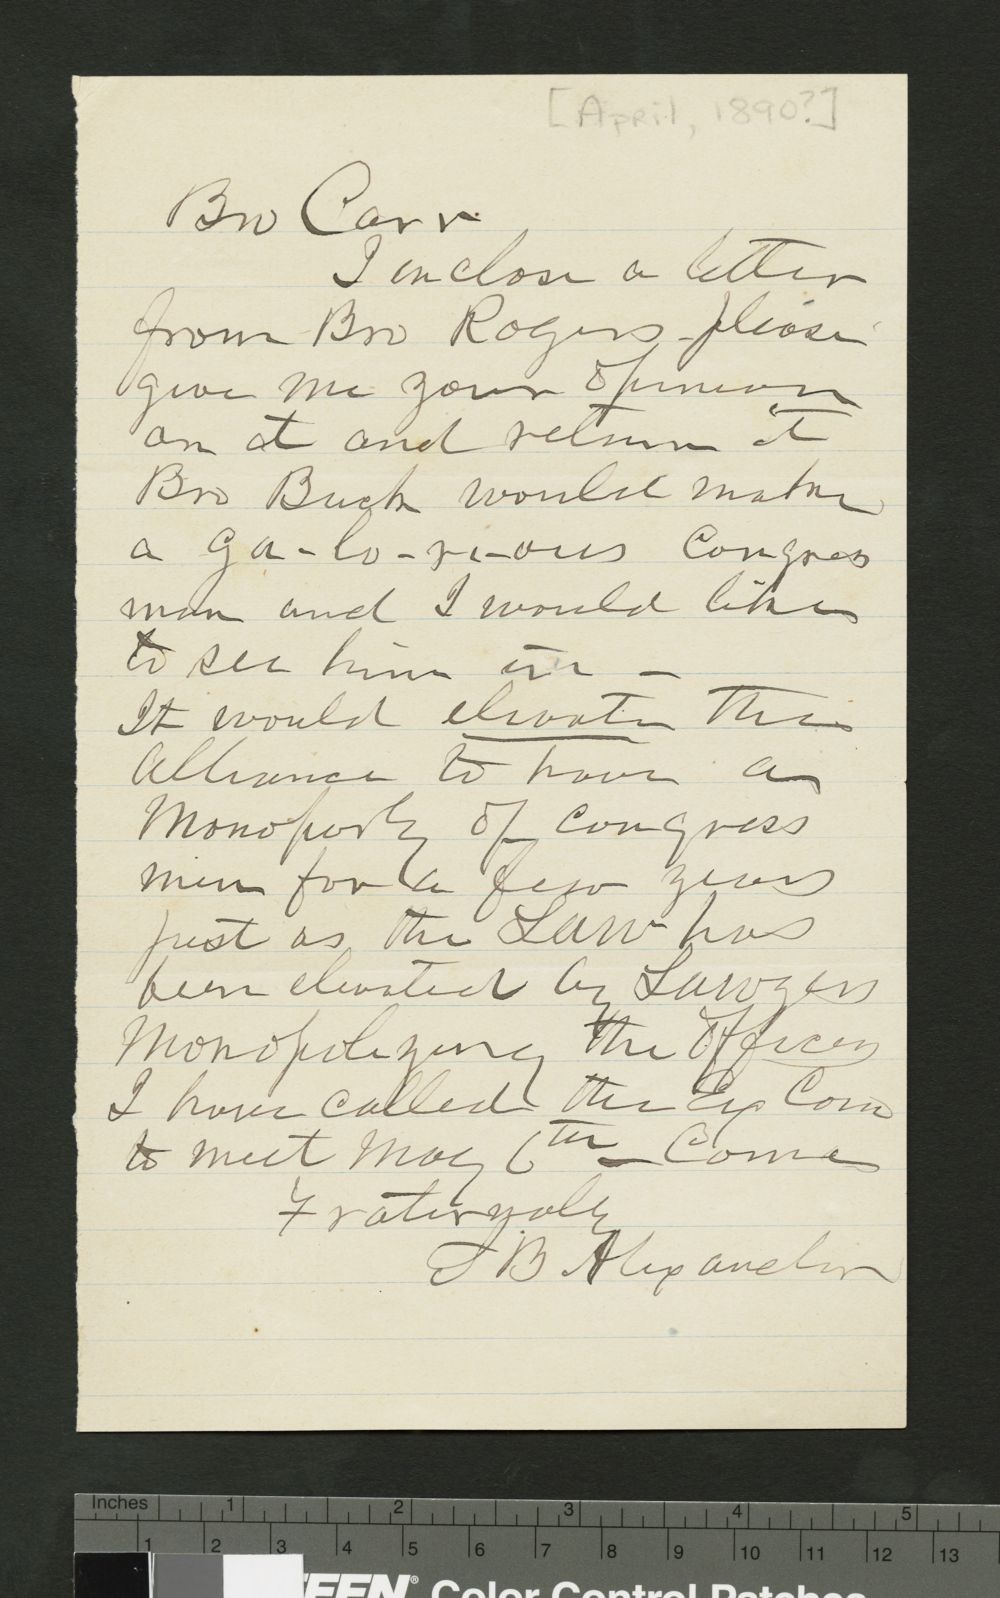 [April, 1890?]
Bro Carr
I enclose a letter
from Bro Rogers please
give me your opinion
on it and return it
Bro Buck would make
a ga-lo-ri-ous Congress
man and I would like
to see him in —
It would elevate the
Alliance to have a
Monopoly of congress
men for a few years
just as the Law has
been elevated by Lawyers
Monopolizing the Offices
I have called the Ex Com
to meet May 6th — Come
Fraternally
S B Alexander
Inches 1 2 3 4 5
1 2 3 4 5 6 7 8 9 10 11 12 13
Color Control Patches